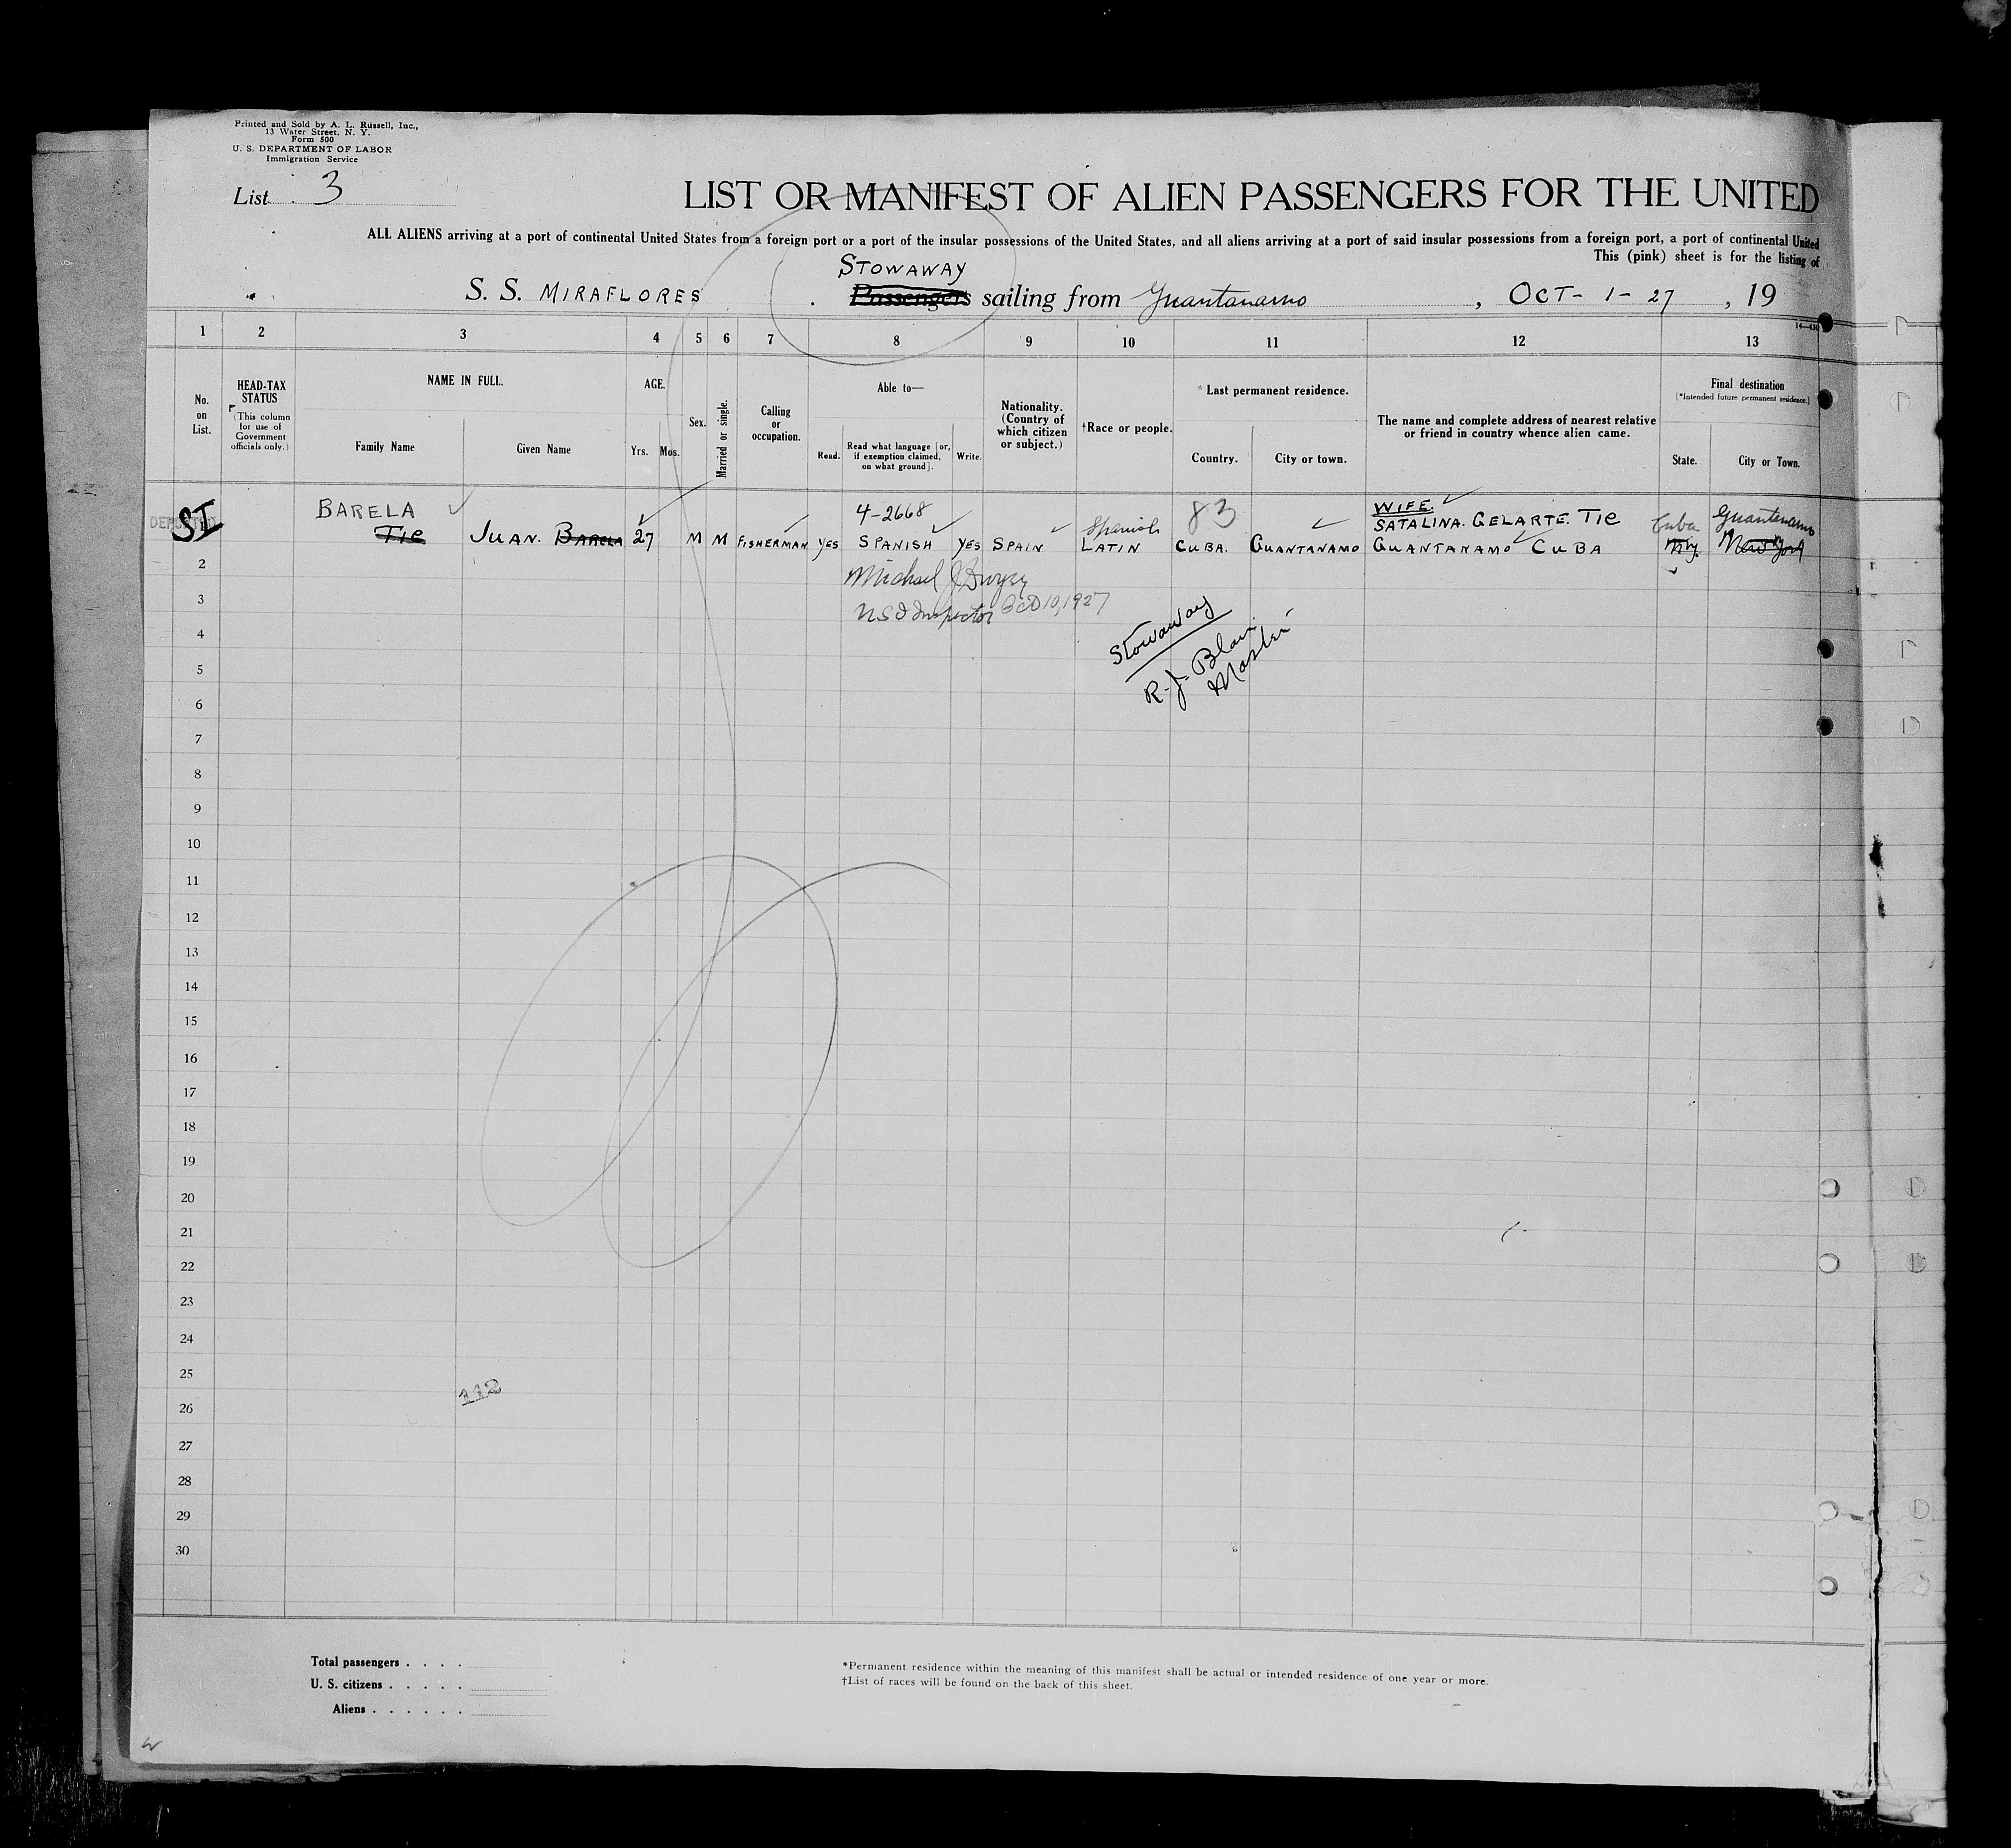 Printed and Sold by A. L. Russell, Inc.,
13 Water Street, N. Y.
Form 500
U. S. DEPARTMENT OF LABOR
Immigration Service
List 3
LIST OR MANIFEST OF ALIEN PASSENGERS FOR THE UNITED
ALL ALIENS arriving at a port of continental United States from a foreign port or a port of the insular possessions of the United States, and all aliens arriving at a port of said insular possessions from a foreign port, a port of continental United
This (pink) sheet is for the listing of
STOWAWAY
S. S. MIRAFLORES Passengers sailing from Guantanamo, OCT- 1- 27, 19
1 2 3 4 5 6 7 8 9 10 11 12 13
No. on List.
HEAD-TAX STATUS
(This column for use of Government officials only.)
NAME IN FULL.
Family Name
Given Name
AGE.
Yrs. Mos.
Sex.
Married or single.
Calling or occupation.
Able to—
Read.
Read what language [or, if exemption claimed, on what ground].
Write.
Nationality. (Country of which citizen or subject.)
†Race or people.
*Last permanent residence.
Country.
City or town.
The name and complete address of nearest relative or friend in country whence alien came.
Final destination
(*Intended future permanent residence.)
State.
City or Town.
BARELA 4-2668 Spanish 83 WIFE. Cuba Guantanamo
SI Tie JUAN. BARELA 27 M M FISHERMAN YES SPANISH YES SPAIN LATIN CUBA. GUANTANAMO SATALINA. GELARTE. TIE N.Y. New York
GUANTANAMO CUBA
DEPORTED
2
Michael J
3
Inspector Oct 10, 1927
4
Stowaway
5
R. J. Blair
Master
6
7
8
9
10
11
12
13
14
15
16
17
18
19
20
21
22
23
24
25
112
26
27
28
29
30
Total passengers . . . .
U. S. citizens . . . . .
Aliens . . . . . .
*Permanent residence within the meaning of this manifest shall be actual or intended residence of one year or more.
†List of races will be found on the back of this sheet.